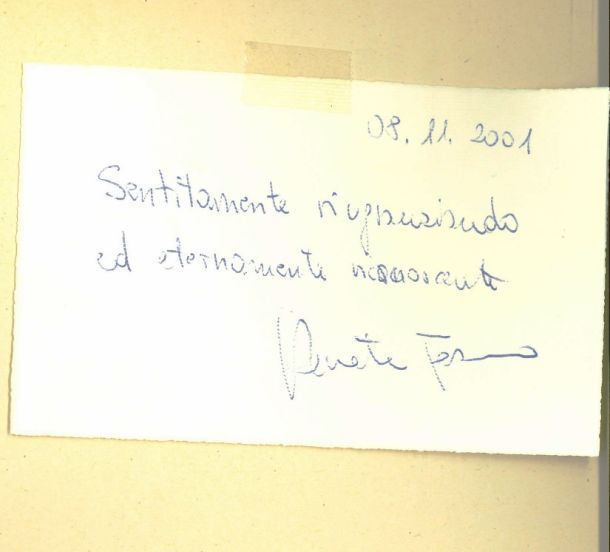 08.11.2001
Sentitamente ringraziando
ed eternamente riconoscente